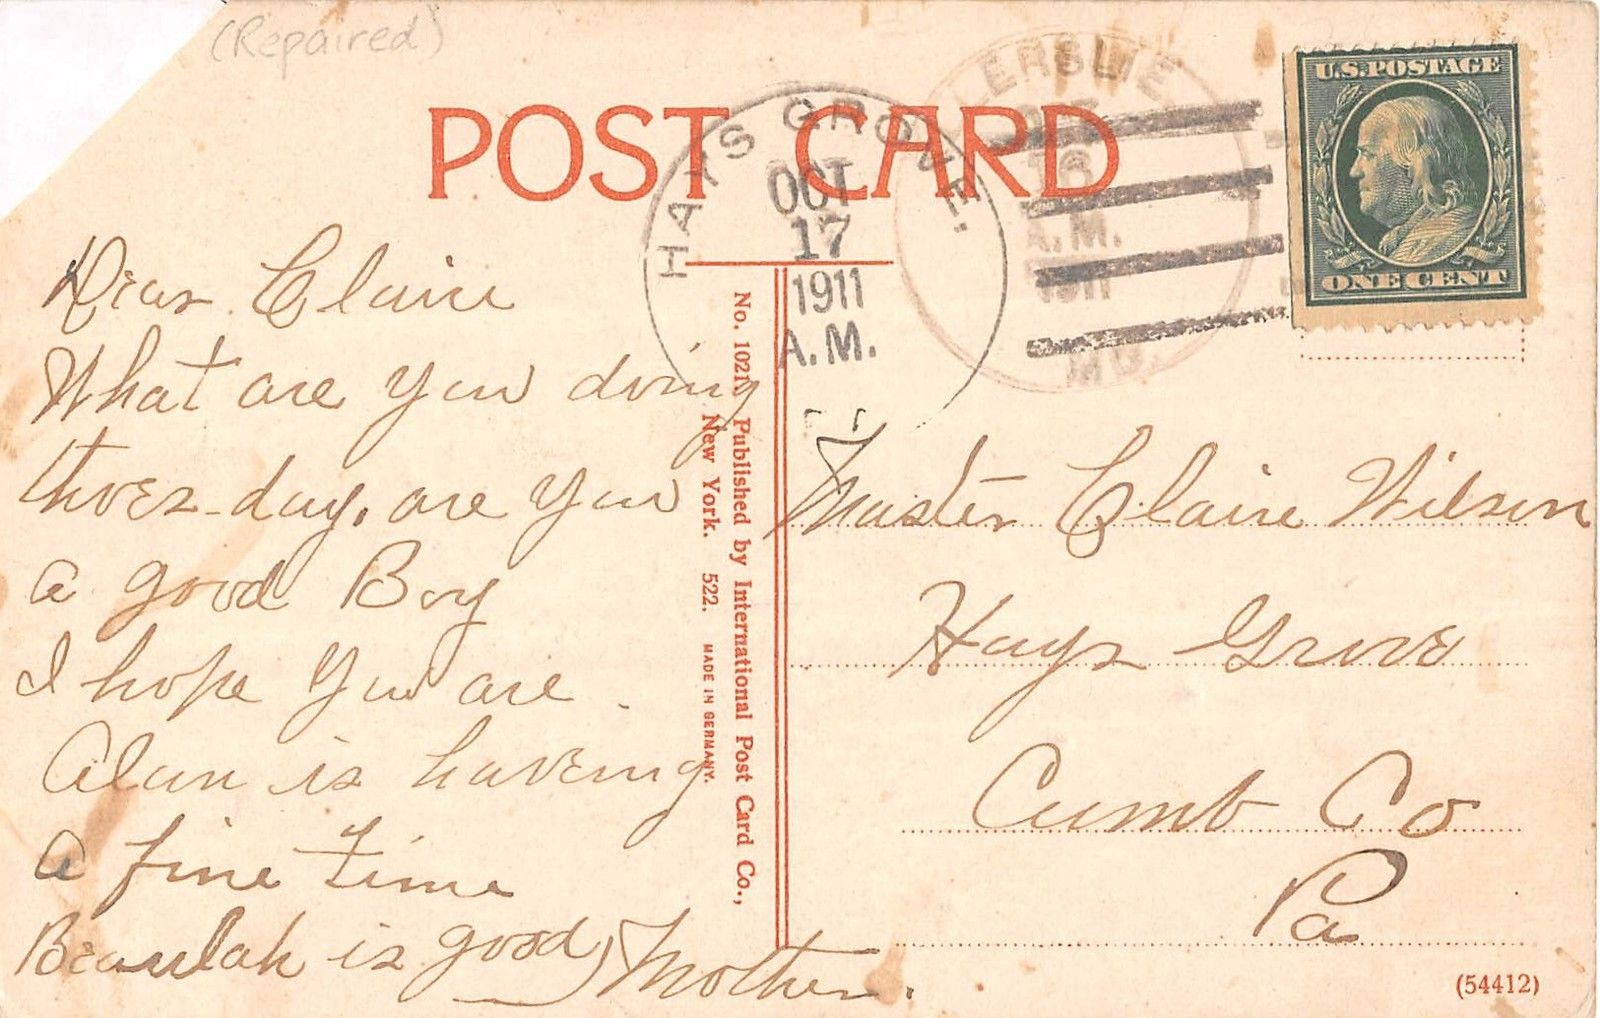 (Repaired)
POST CARD
HAYS GROVE.
OCT
17
1911
A.M.
LERSLIE
16
A.M.
1911
MD.
U.S. POSTAGE
ONE CENT
Dear Claire
What are you doing
thoes day, are you
a good Boy
I hope you are.
Alan is having
a fine time
Beaulah is good, Mother.
No. 1021. Published by International Post Card Co.,
New York. 522. MADE IN GERMANY.
Master Claire Wilson
Hays Grove
Cumb Co
Pa
(54412)